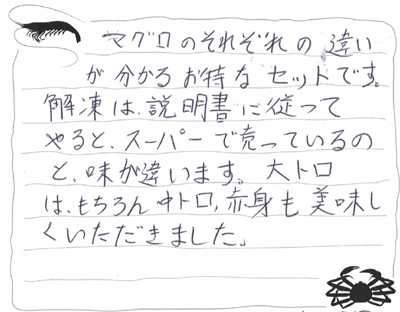 マグロのそれぞれの違い
が分かるお得なセットです。
解凍は、説明書に従って
やると、スーパーで売っているの
と、味が違います。大トロ
は、もちろん中トロ、赤身も美味し
くいただきました。